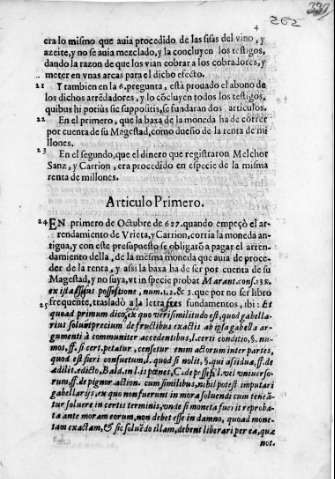 4
262
era lo mismo que auia procedido de las sisas del vino, y
azeite, y no se auia mezclado, y la concluyen los testigos,
dando la razon de que los vian cobrar a los cobradores, y
meter en vnas arcas para el dicho efecto.
21 Y tambien en la 6. pregunta, està prouado el abono de
los dichos arrẽdadores, y lo cõcluyen todos los testigos,
quibus ita positis sic suppositis, se fundaran dos articulos.
22 En el primero, que la baxa de la moneda ha de correr
por cuenta de su Magestad, como dueño de la renta de mi
llones.
23 En el segundo, que el dinero que registraron Melchor
Sanz, y Carrion, era procedido en especie de la misma
renta de millones.
Articulo Primero.
24 EN primero de Octubre de 627. quando empeçò el ar-
rendamiento de Vrieta, y Carrion, corria la moneda an-
tigua, y con este presupuesto se obligarõ a pagar el arren-
damiento della, de la mesma moneda que auia de proce-
der de la renta, y assi la baxa ha de ser por cuenta de su
Magestad, y no suya, vt in specie probat Marant. cons. 132.
ex ista siquis possessione, num. 1. 2. & 3. que por no ser libro
25 frequente, traslado a la letra sus fundamentos, ibi: Et
quoad primum dico, ex quo verisimilitudo est, quod gabella-
rius soluit precium de fructibus exactis ab ipsa gabella ar-
gumenti à communiter accedentibus, l. certi conditio, §. num-
mos, ff. si cert. petatur, censetur enim actorum inter partes,
quod est fieri consuetum, l. quod si nolit, §. qui assidua, ff. de
ædilit. edicto, Bald. in l. si pænet, C. de possess. l. vel vniuerso-
rum, ff. de pignor. action. cum similibus, nihil potest imputari
gabellarijs, ex quo non fuerunt in mora soluendi cum tenean-
tur soluere in certis terminis, vnde si moneta fuit reproba-
ta ante moram eorum, non debet esse in damno, quoad mone-
tam exactam, & sic soluẽdo illam, debent liberari per ea, quæ
not.